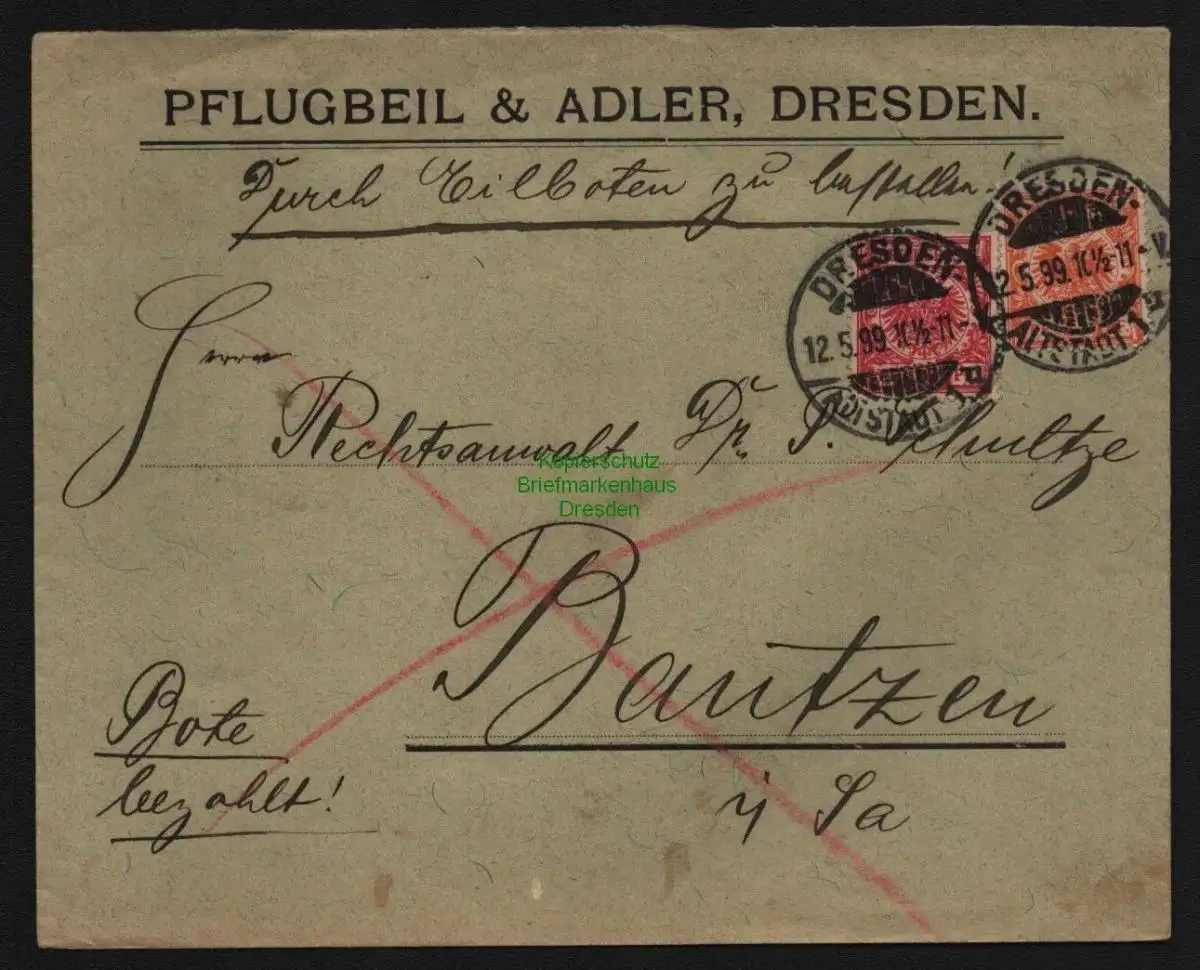 PFLUGBEIL & ADLER, DRESDEN.
Durch Eilboten zu bestellen!
DRESDEN-
12.5.99.10½-11-V.
ALTSTADT 1
DRESDEN-
12.5.99.10½-11-
ALTSTADT 1
Herrn
Rechtsanwalt Dr. S.
Kopierschutz
Briefmarkenhaus
Dresden
Bautzen
i/ Sa
Bote
bezahlt!